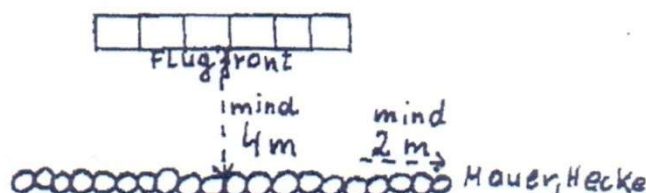 Flugfront
mind
4 m
mind
2 m
Mauer, Hecke